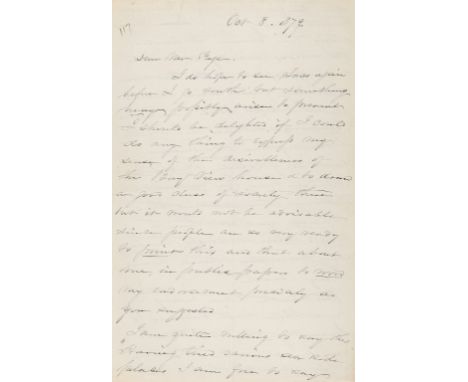 117
Oct 8. 1872
Dear Mrs. Page.
I do hope to see you again
before I go South but something
may possibly arise to prevent.
I should be delighted if I could
do any thing to express my
sense of the excellence of
the Bay View house & to draw
a good class of society there
but it would not be advisable
since people are so very ready
to print this and that about
me, in public papers to word
my endorsement precisely as
you suggested.
"I am quite willing to say that
"Having tried various sea side
places I am free to say